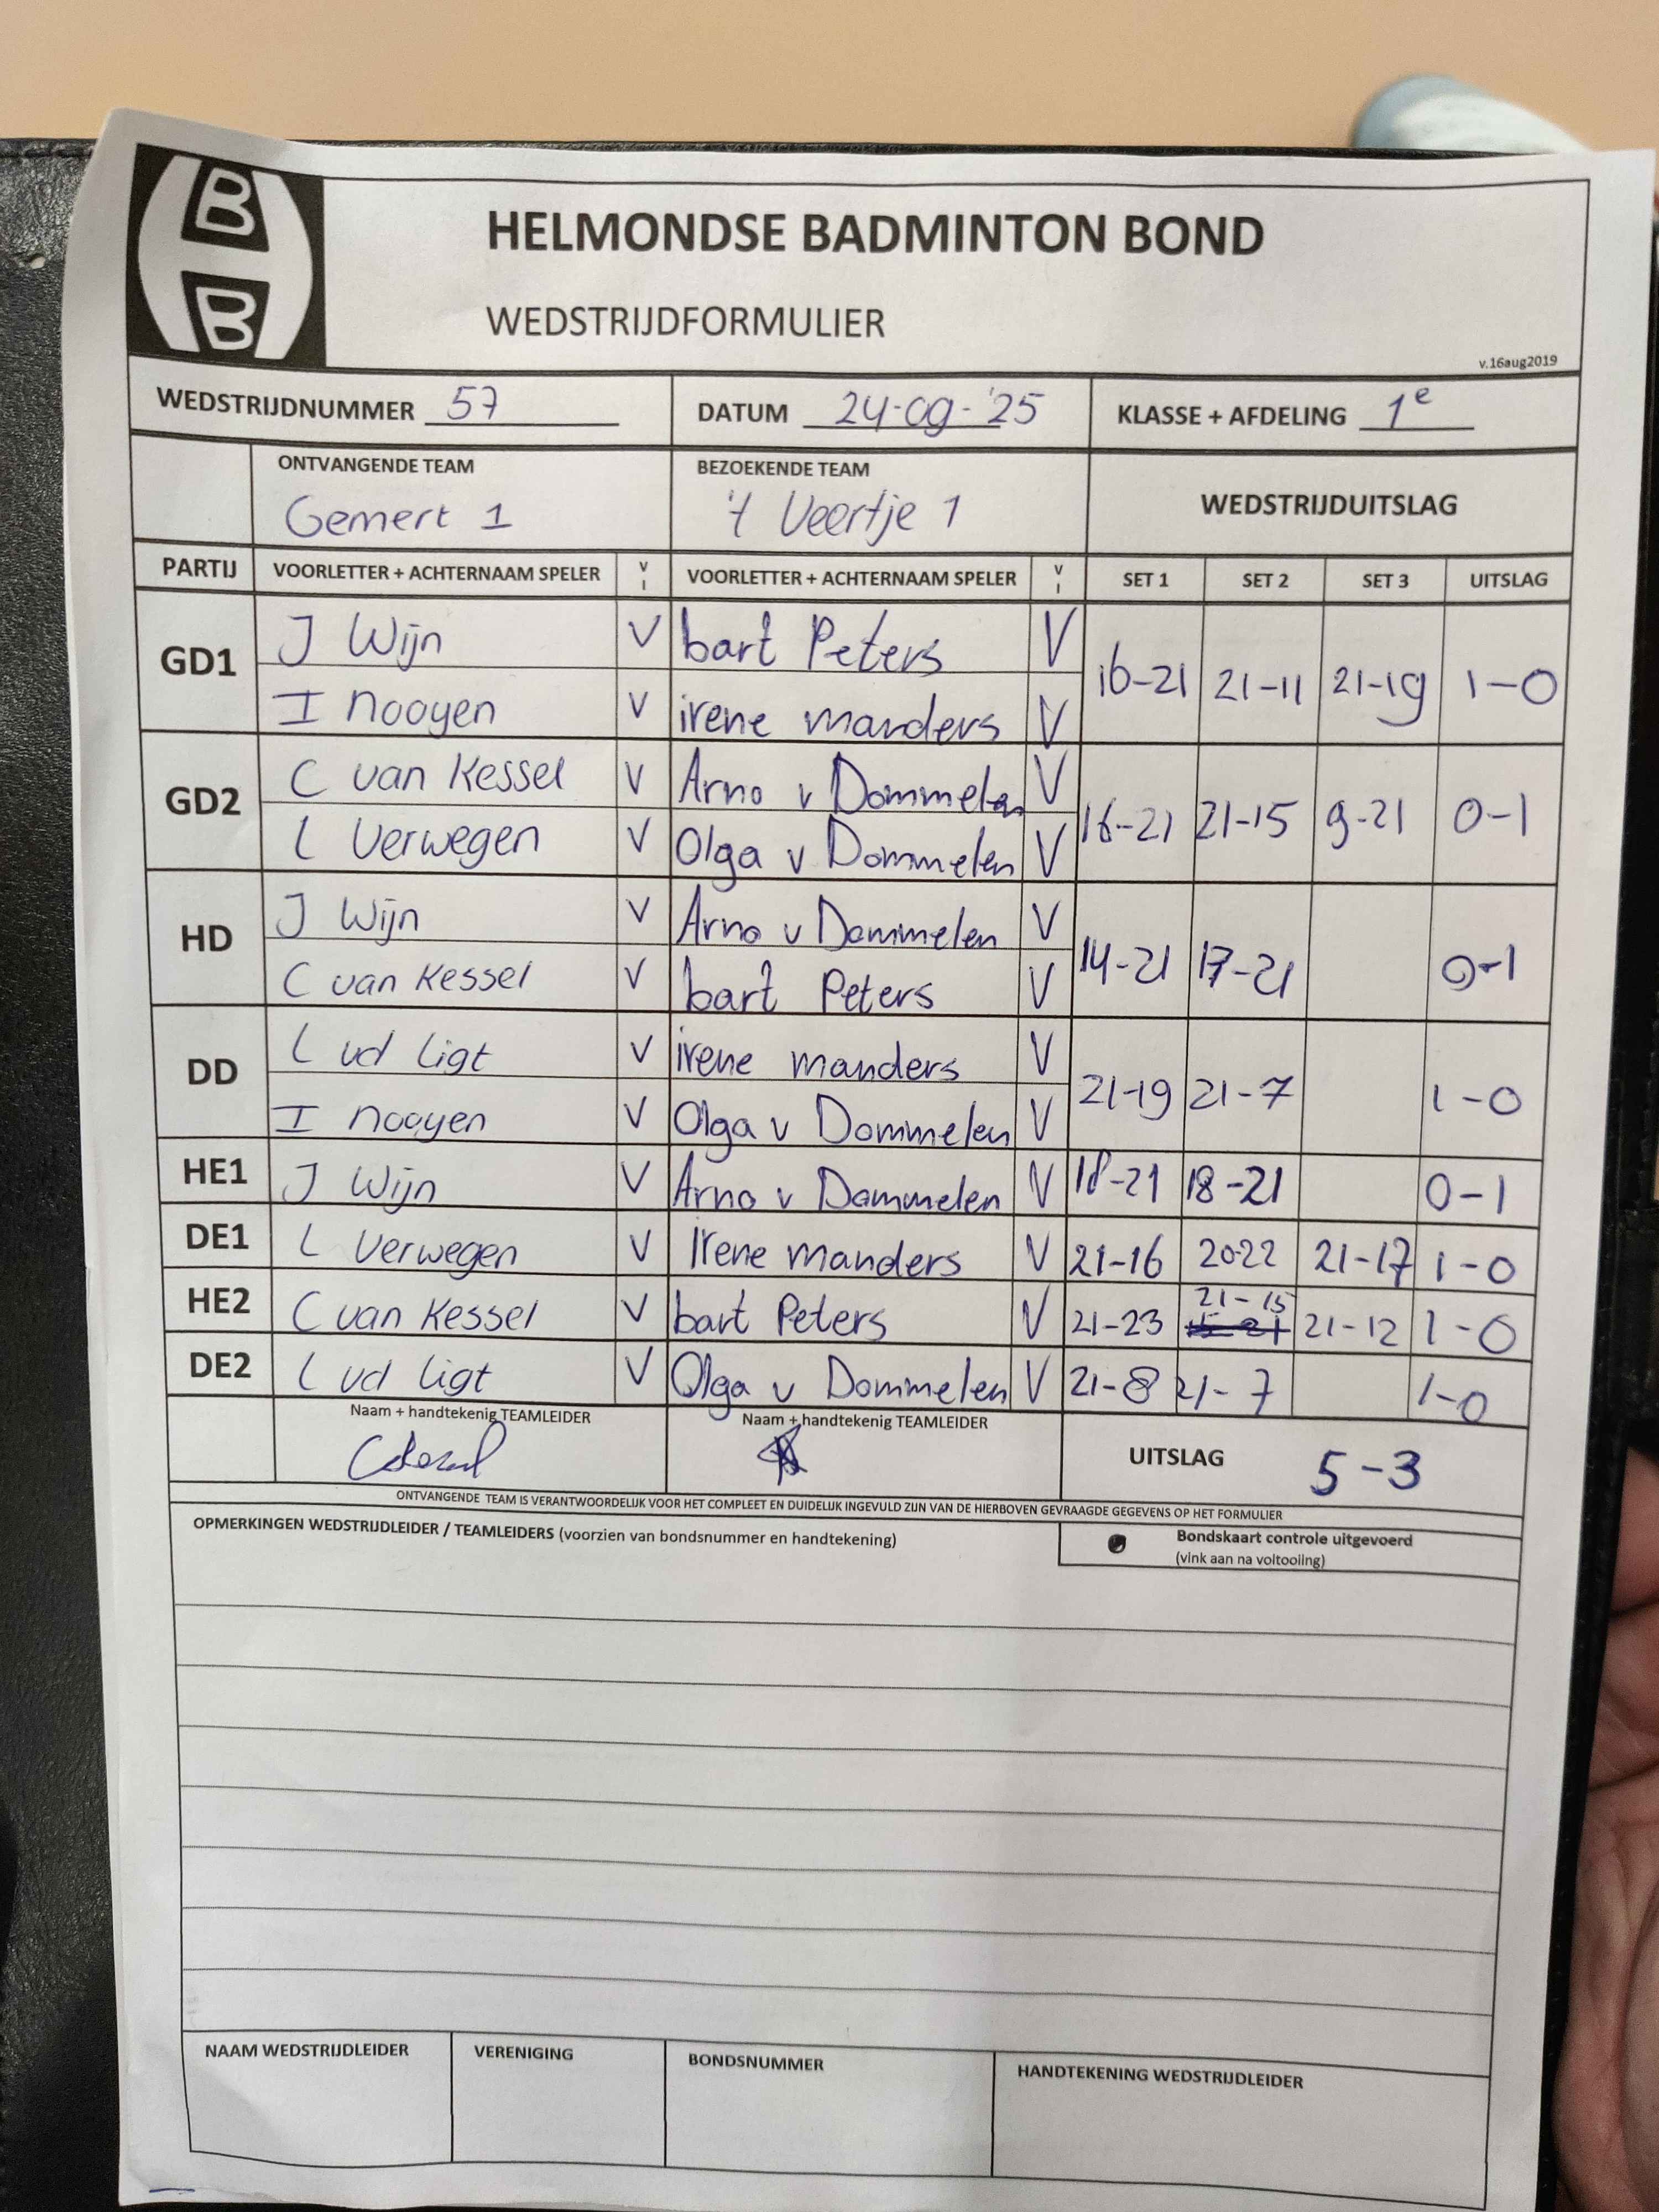 B
B
HELMONDSE BADMINTON BOND
WEDSTRIJDFORMULIER
v.16aug2019
WEDSTRIJDNUMMER 57 DATUM 24-09-'25 KLASSE + AFDELING 1e
ONTVANGENDE TEAM BEZOEKENDE TEAM WEDSTRIJDUITSLAG
Gemert 1 't Veertje 1
PARTIJ VOORLETTER + ACHTERNAAM SPELER V I VOORLETTER + ACHTERNAAM SPELER V I SET 1 SET 2 SET 3 UITSLAG
GD1 J Wijn V bart Peters V 16-21 21-11 21-19 1-0
I Nooyen V irene manders V
GD2 C van Kessel V Arno v Dommelen V 16-21 21-15 9-21 0-1
L Verwegen V Olga v Dommelen V
HD J Wijn V Arno v Dommelen V 14-21 17-21 0-1
C van Kessel V bart Peters V
DD L vd Ligt V irene manders V 21-19 21-7 1-0
I Nooyen V Olga v Dommelen V
HE1 J Wijn V Arno v Dommelen V 18-21 18-21 0-1
DE1 L Verwegen V Irene manders V 21-16 20-22 21-17 1-0
HE2 C van Kessel V bart Peters V 21-23 21-15 21-12 1-0
DE2 L vd Ligt V Olga v Dommelen V 21-8 21-7 1-0
Naam + handtekenig TEAMLEIDER Naam + handtekenig TEAMLEIDER
UITSLAG 5-3
ONTVANGENDE TEAM IS VERANTWOORDELIJK VOOR HET COMPLEET EN DUIDELIJK INGEVULD ZIJN VAN DE HIERBOVEN GEVRAAGDE GEGEVENS OP HET FORMULIER
OPMERKINGEN WEDSTRIJDLEIDER / TEAMLEIDERS (voorzien van bondsnummer en handtekening)
Bondskaart controle uitgevoerd
(vink aan na voltooiing)
NAAM WEDSTRIJDLEIDER VERENIGING BONDSNUMMER HANDTEKENING WEDSTRIJDLEIDER